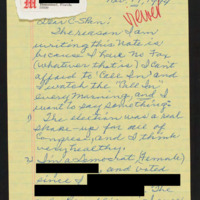 Nov. 17, 1994
Dear C-Span:
The reason I am
writing this Note is
because I have No Fax
(whatever that is) I can't
afford to "Call In" and
I watch the "Call In"
every morning, and I
want to say something:
1. The election was a real
shake-up for all of
Congress, and I think
very healthy.
2. I'm a Democrat, (Female)
and voted
since I
The